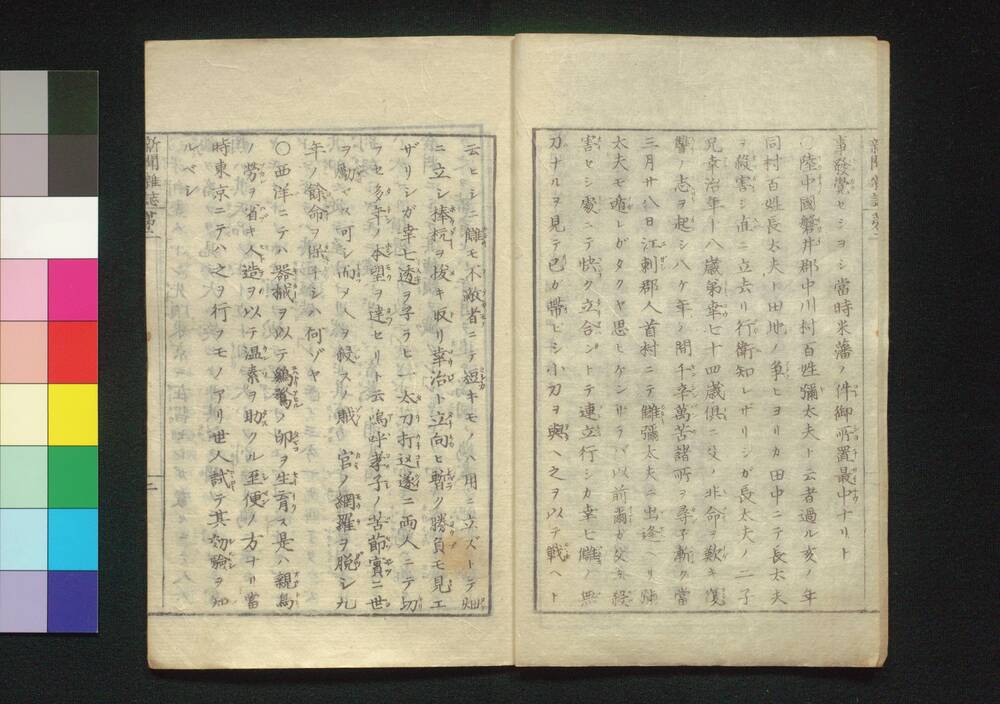 事發覺セシヨシ當時米藩ノ件御所置最中ナリト
○陸中國磐井郡中川村百姓彌太夫ト云者過ル亥ノ年
同村百姓長太夫ト田地ノ爭ヒヨリカ田中ニテ長太夫
ヲ殺害シ直ニ立去リ行衛知レザリシガ長太夫ノ二子
兄幸治年十八歳第幸七十四歳倶ニ父ノ非命ヲ歎キ復
讐ノ志ヲ起シ八ケ年ノ間千辛萬苦諸所ヲ尋子漸ク當
三月廿八日江刺郡人首村ニテ讎彌太夫ニ出逢ヘリ彌
太夫モ遁レガタクヤ思ヒケンサラバ以前爾ガ父ヲ殺
害セシ家ニテ快ク立合ントテ連立行シカ幸七讎ノ無
刀ナルヲ見テ己ガ帶ビシ小刀ヲ與ヘ之ヲ以テ戰ヘト
云ヒシニ讎モ不敵者ニテ短キモノハ用ニ立ズトテ畑
ニ立シ棒杭ヲ拔キ取リ幸治ト立向ヒ暫ク勝負モ見エ
ザリシガ幸七透ヲ子ラヒ一太刀打込遂ニ兩人ニテ切
フセ多年ノ本望ヲ達セリト云嗚呼孝子ノ苦節實ニ世
ヲ勵マス可シ而メ人ヲ殺スノ賊官ノ網羅ヲ脱シ九
年ノ餘命ヲ保チシハ何ゾヤ
○西洋ニテハ器械ヲ以テ鷄鶩ノ卵ヲ生育ス是ハ親鳥
ノ勞ヲ省キ人造ヲ以テ温素ヲ助クル至便ノ方ナリ當
時東京ニテハ之ヲ行フモノアリ世人試テ其効驗ヲ知
ルベシ
新聞雜誌